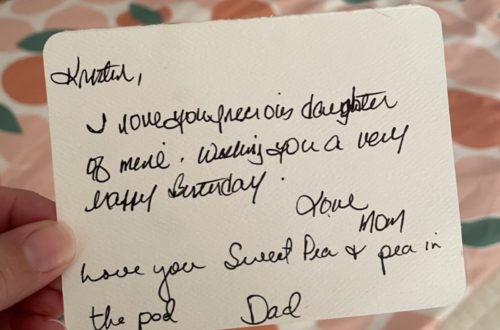 Kristen,
I love you precious daughter
of mine. Wishing you a very
Happy Birthday.
Love
Mom
Love you Sweet Pea & pea in
the pod Dad